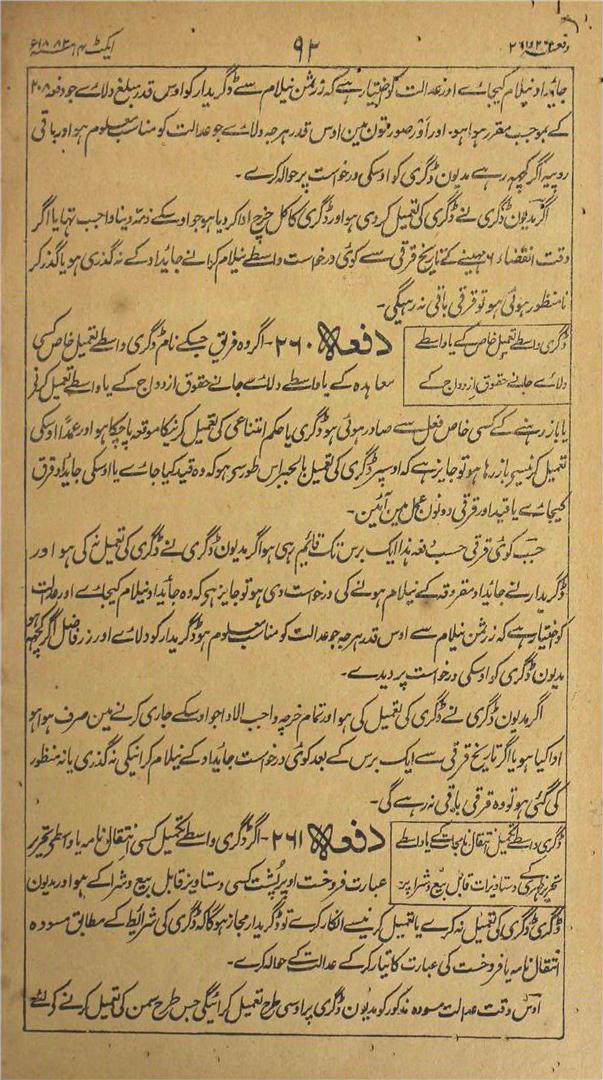 دفعہ ۲۶۰ و ۲۶۱
۹۲
ایکٹ ۱۴ ۱۸۸۲ء
جائداد نیلام کیجائے اور عدالت کو اختیار ہے کہ زر ثمن نیلام سے ڈگریدار کو اوس قدر مبلغ دلائے جو دفعہ ۲۰۸
کے بموجب مقرر ہوا ہو۔ اور اَوْر صورتون مین اوس قدر ہرجہ دلائے جو عدالت کو مناسب معلوم ہو اور باقی
روپیہ اگر کچھ رہے مدیون ڈگری کو اوسکی درخواست پر حوالہ کرے۔
اگر مدیون ڈگری نے ڈگری کی تعمیل کر دی ہو اور ڈگری کا کل خرچ ادا کر دیا ہو جو اوسکے ذمہ دینا واجب تھا یا اگر
وقت انقضاء ۶ مہینے کے تاریخ قرقی سے کوئی درخواست واسطے نیلام کرانے جائداد کے نہ گذری ہو یا گذر کر
نامنظور ہوئی ہو تو قرقی باقی نہ رہیگی۔
ڈگری واسطے تعمیل خاص کے یا واسطے
دلائے جانے حقوق ازدواج کے
دفعہ ۲۶۰۔ اگر وہ فریق جسکے نام ڈگری واسطے تعمیل خاص کسی
معاہدہ کے یا واسطے دلائے جانے حقوق ازدواج کے یا واسطے تعمیل کرنے
یا باز رہنے کے کسی خاص فعل سے صادر ہوئی ہو ڈگری یا حکم امتناعی کی تعمیل کرنیکا موقعہ پا چکا ہو اور عمداً اوسکی
تعمیل کرنیسے باز رہا ہو تو جایز ہے کہ اوسپر ڈگری کی تعمیل بالجبر اس طور سے ہو کہ وہ قید کیا جائے یا اوسکی جائداد قرق
کیجائے یا قید اور قرقی دونون عمل مین آئین۔
جب کوئی قرقی حسب دفعہ ہذا ایک برس تک قائم رہی ہو اگر مدیون ڈگری نے ڈگری کی تعمیل نہ کی ہو اور
ڈگریدار نے جائداد مقروقہ کے نیلام ہونے کی درخواست دی ہو تو جایز ہے کہ وہ جائداد نیلام کیجائے اور عدالت
کو اختیار ہے کہ زر ثمن نیلام سے اوس قدر ہرجہ جو عدالت کو مناسب معلوم ہو ڈگریدار کو دلائے اور زر فاضل اگر کچھ ہو
مدیون ڈگری کو اوسکی درخواست پر دیدے۔
اگر مدیون ڈگری نے ڈگری کی تعمیل کی ہو اور تمام خرچہ واجب الادا جو اوسکے جاری کرنے مین صرف ہوا ہو
ادا کیا ہو یا اگر تاریخ قرقی سے ایک برس کے بعد کوئی درخواست جائداد کے نیلام کرانیکی نہ گذری یا نہ منظور
کی گئی ہو تو وہ قرقی باقی نہ رہے گی۔
ڈگری واسطے تکمیل انتقالنامجات کے یا واسطے
تحریر ظہری کے دستاویزات قابل بیع و شرا پر۔
دفعہ ۲۶۱۔ اگر ڈگری واسطے تکمیل کسی انتقالنامہ یا واسطے تحریر
عبارت فروخت اوپر پشت کسی دستاویز قابل بیع و شرا کے ہو اور مدیون
ڈگری ڈگری کی تعمیل نہ کرے یا تعمیل کرنیسے انکار کرے تو ڈگریدار مجاز ہوگا کہ ڈگری کی شرائط کے مطابق مسودہ
انتقال نامہ یا فروخت کی عبارت کا تیار کر کے عدالت کے حوالہ کرے۔
اوس وقت عدالت مسودہ مذکور کو مدیون ڈگری پر اوسی طرح تعمیل کرائیگی جس طرح سمن کی تعمیل کرنے کے لئے